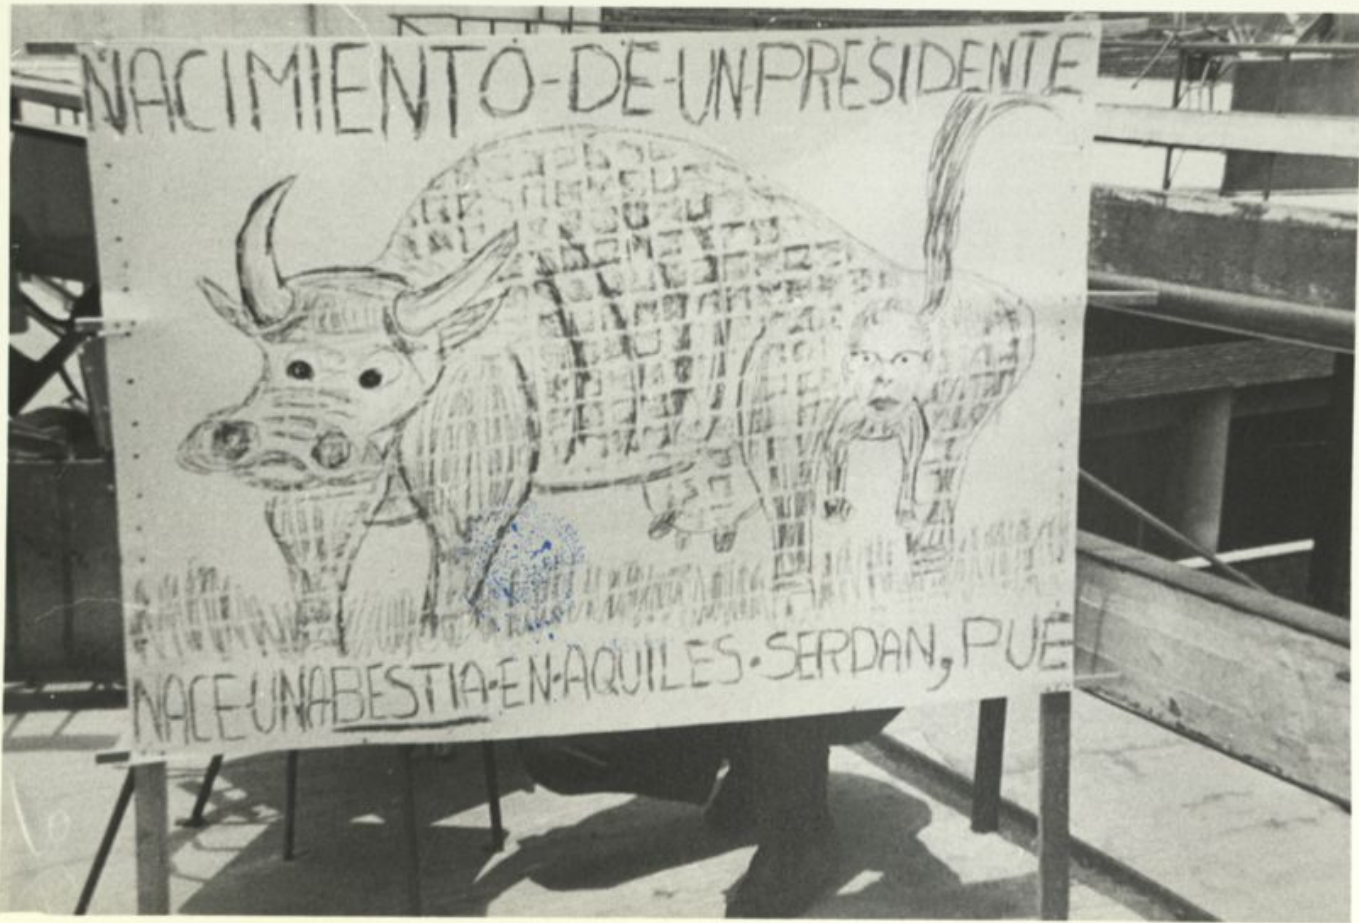 NACIMIENTO-DE-UN-PRESIDENTE
NACE-UNA BESTIA-EN-AQUILES-SERDAN, PUE